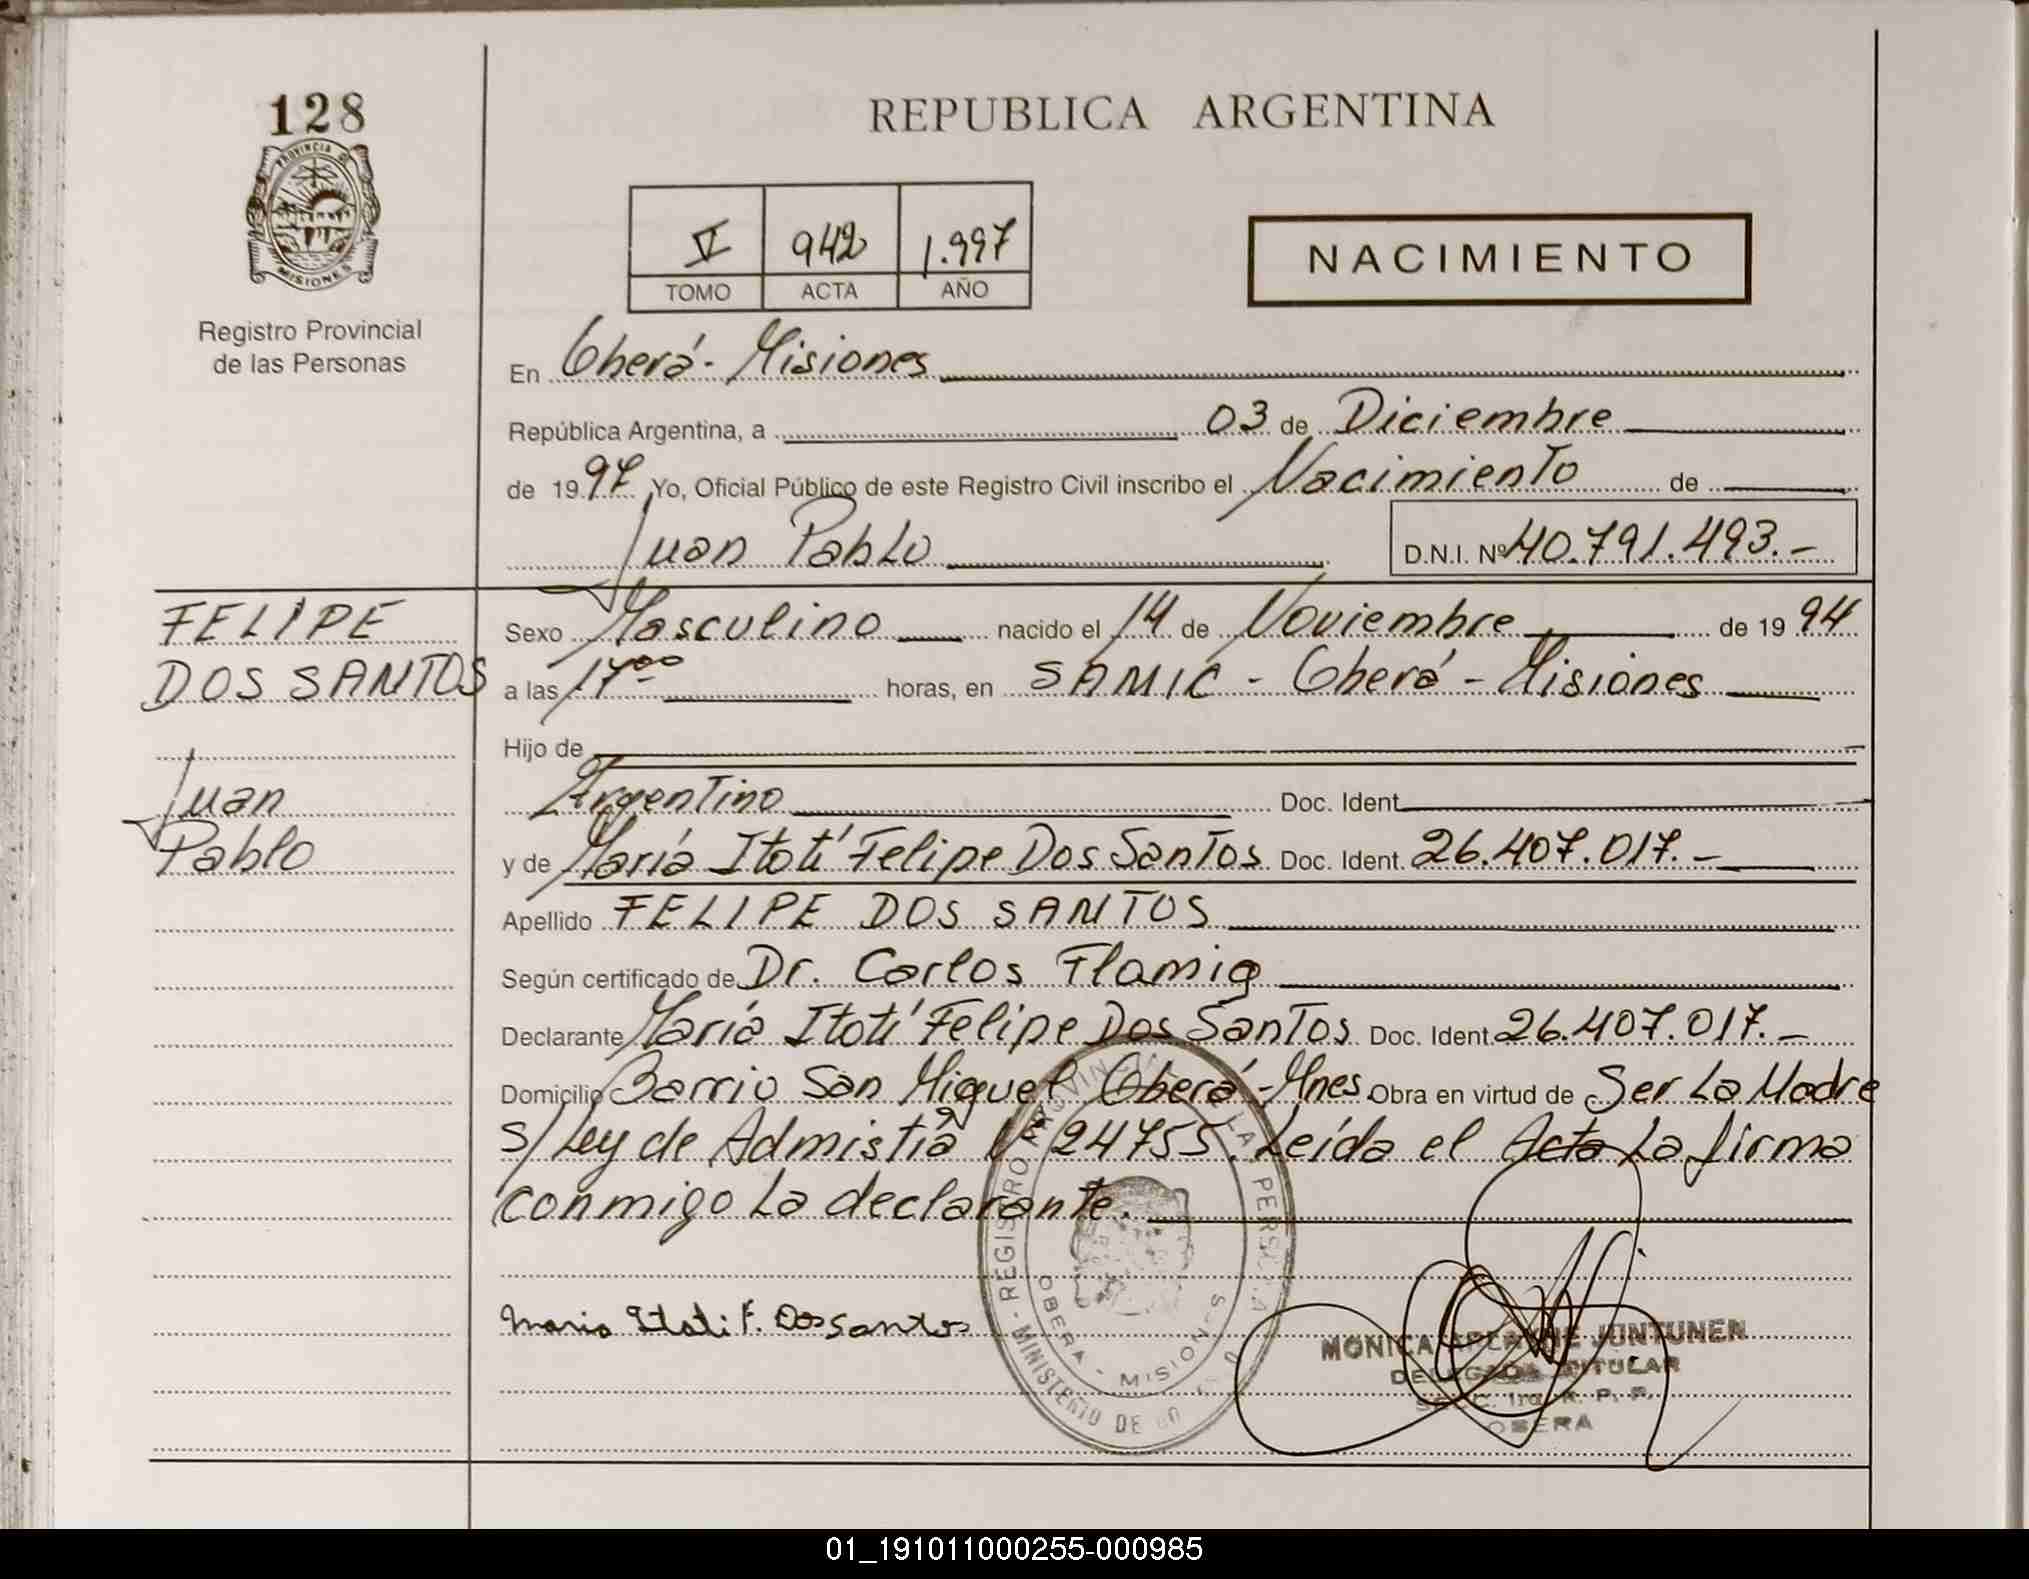 128
PROVINCIA DE
MISIONES
Registro Provincial
de las Personas
REPUBLICA ARGENTINA
V 942 1.997
TOMO ACTA AÑO
NACIMIENTO
En Oberá - Misiones
República Argentina, a 03 de Diciembre
de 1997 Yo, Oficial Público de este Registro Civil inscribo el Nacimiento de
Juan Pablo D.N.I. Nº 40.791.493.-
FELIPE
DOS SANTOS
Juan
Pablo
Sexo Masculino nacido el 14 de Noviembre de 1994
a las 17°° horas, en SAMIC - Oberá - Misiones
Hijo de
Argentino Doc. Ident.
y de María Itatí Felipe Dos Santos Doc. Ident. 26.407.017.-
Apellido FELIPE DOS SANTOS
Según certificado de Dr. Carlos Flamig
Declarante María Itatí Felipe Dos Santos Doc. Ident. 26.407.017.-
Domicilio Barrio San Miguel Oberá - Mnes Obra en virtud de Ser La Madre
S/ Ley de Admistia Nº 24755. Leída el Acta La firma
conmigo La declarante.
Maria Itati F. Dos Santos
REGISTRO PROVINCIAL DE LAS PERSONAS
MINISTERIO DE GO
OBERA - MISIONES
MONICA ARLENNE JUNTUNEN
DELEGADA TITULAR
SECC. 1ra. R. P. P.
OBERA
01_191011000255-000985